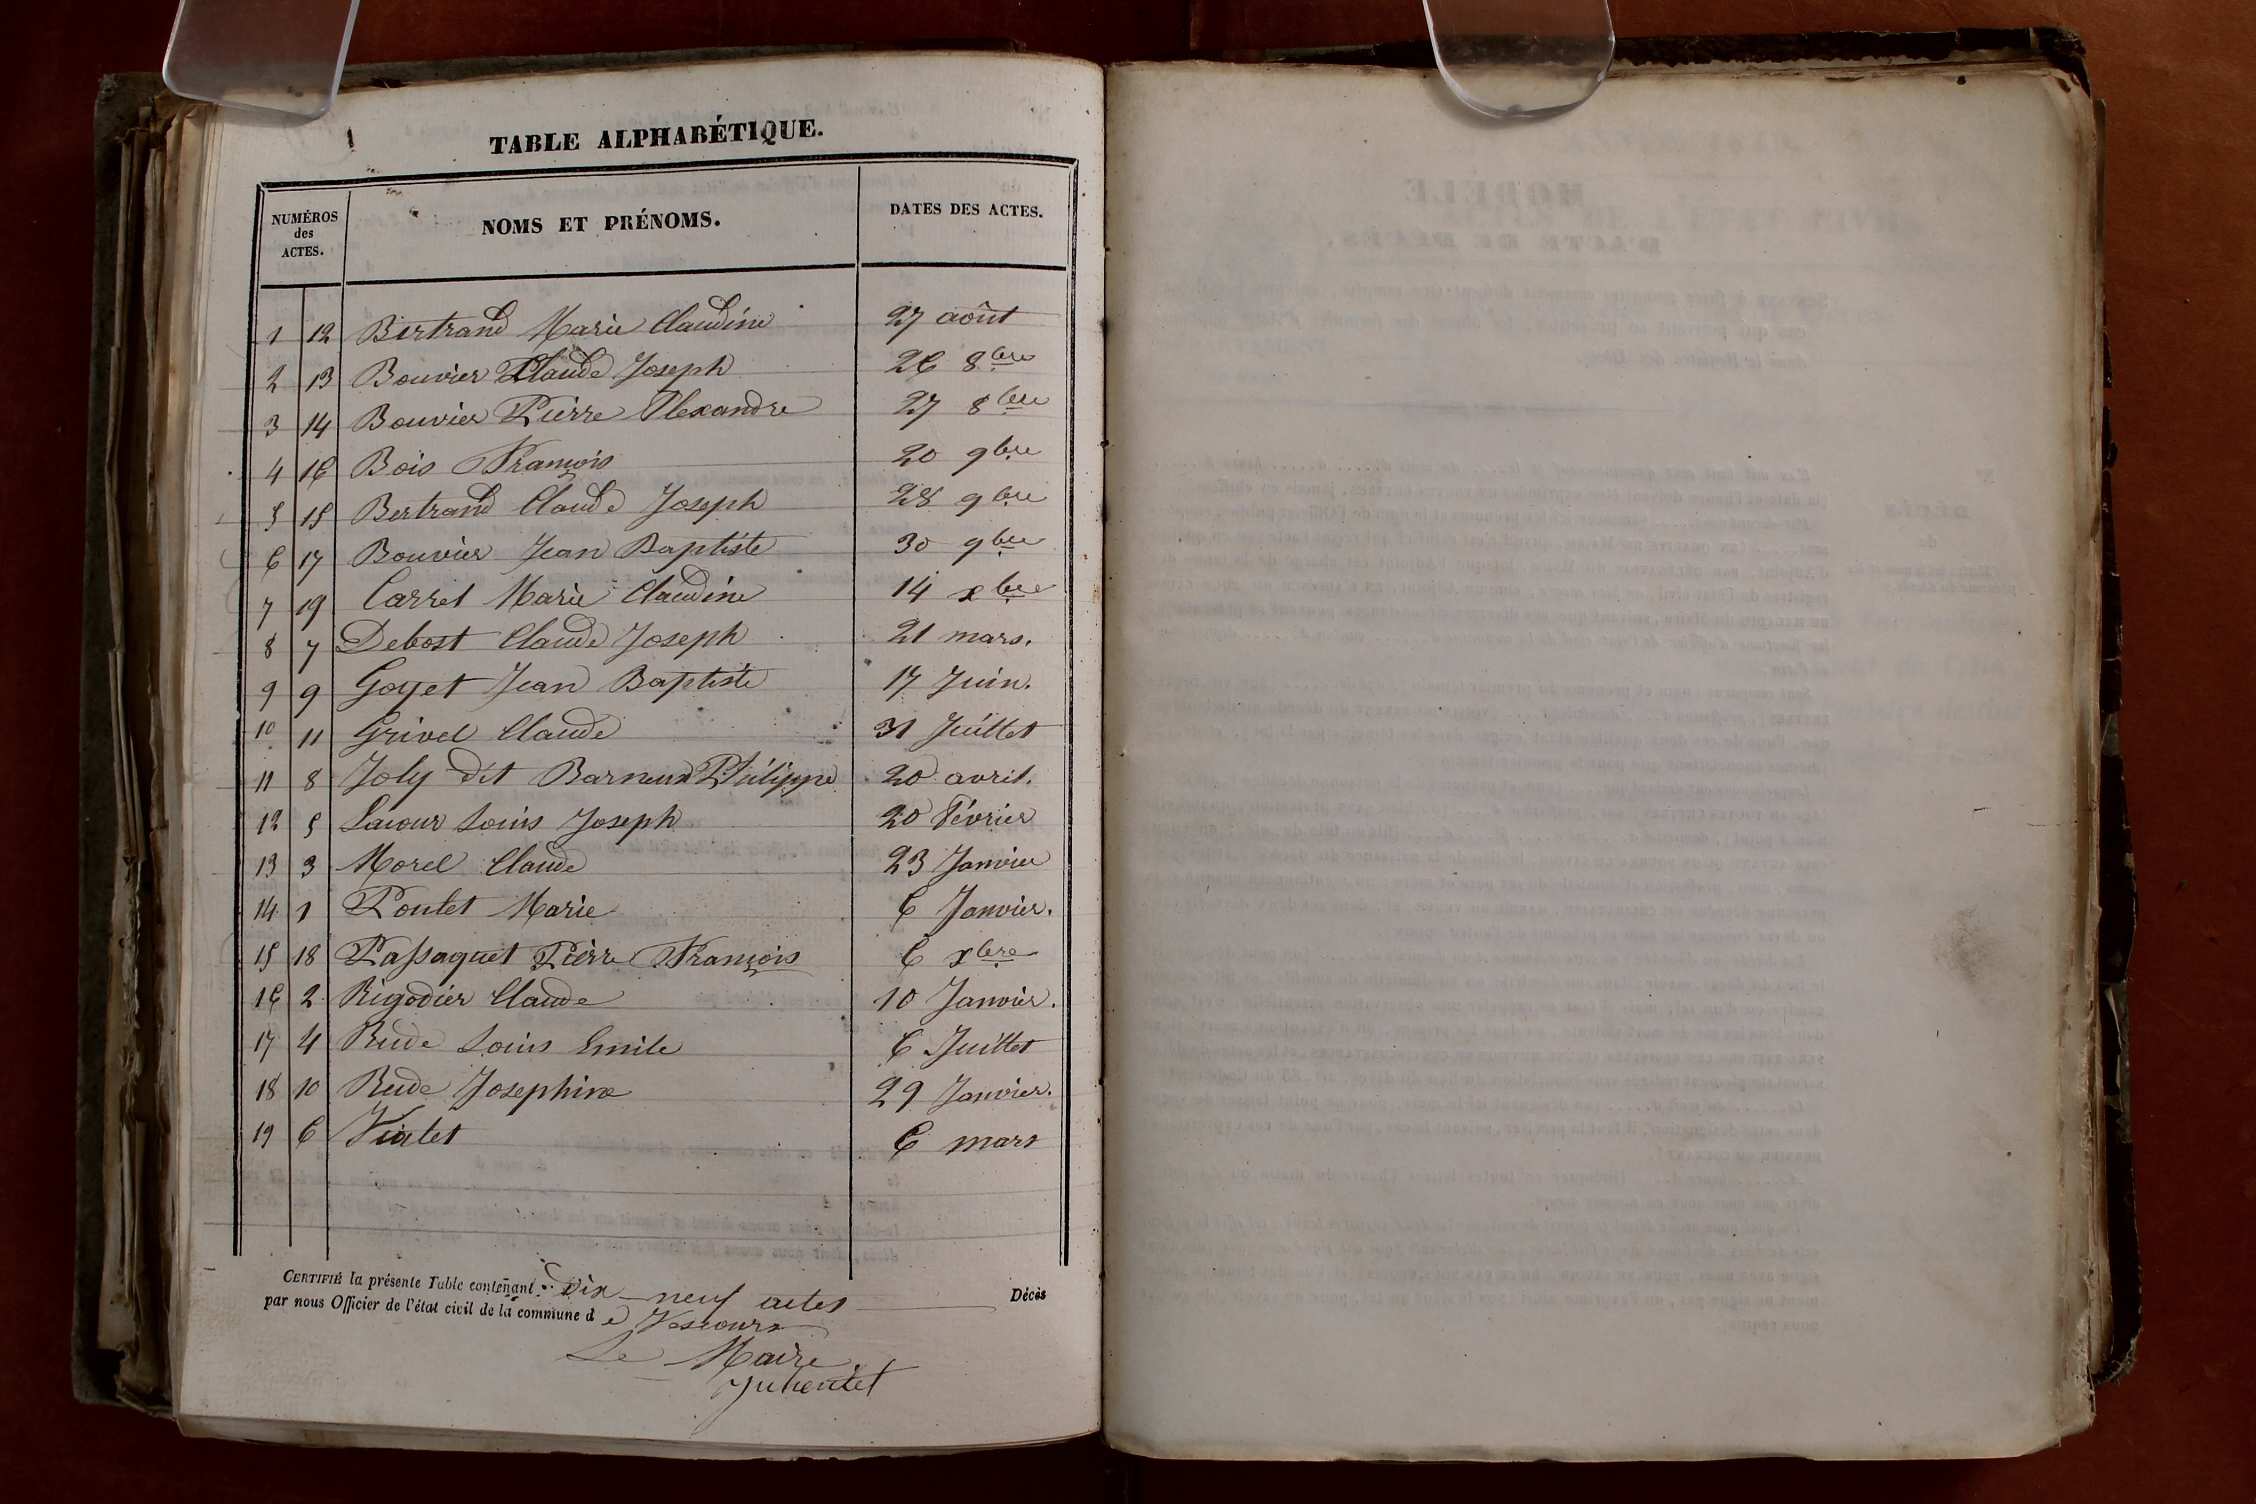 TABLE ALPHABÉTIQUE.
NUMÉROS des ACTES. NOMS ET PRÉNOMS. DATES DES ACTES.
1 12 Bertrand Marie Claudine 27 août
2 13 Bouvier Claude Joseph 26 8bre
3 14 Bouvier Pierre Alexandre 27 8bre
4 16 Bois François 20 9bre
5 15 Bertrand Claude Joseph 28 9bre
6 17 Bouvier Jean Baptiste 30 9bre
7 19 Carret Marie Claudine 14 xbre
8 7 Debost Claude Joseph 21 mars.
9 9 Goyet Jean Baptiste 17 Juin.
10 11 Grivel Claude 31 Juillet
11 8 Joly dit Barneux Philippe 20 avril.
12 5 Lacour Louis Joseph 20 Février
13 3 Morel Claude 23 Janvier
14 1 Poulet Marie 6 Janvier.
15 18 Passaquet Pierre François 6 xbre
16 2 Rigodier Claude 10 Janvier.
17 4 Rude Louis Emile 6 Juillet
18 10 Rude Josephine 29 Janvier.
19 6 Vialet 6 mars
CERTIFIÉ la présente Table contenant dix-neuf actes Décès
par nous Officier de l'état civil de la commune de Vescours
Le Maire